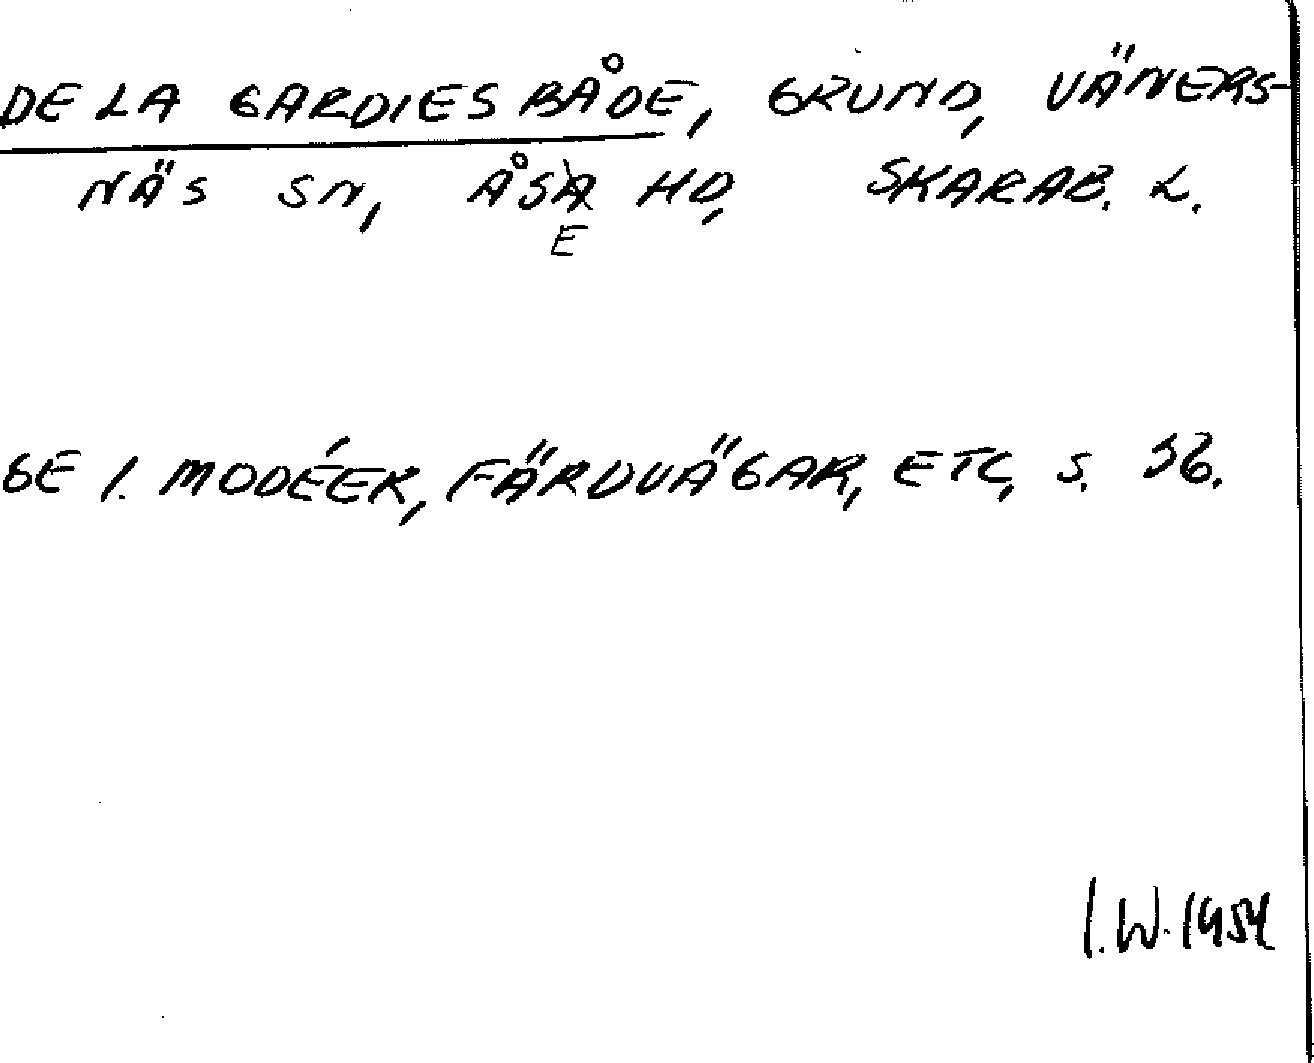 DE LA GARDIES BÅDE, GRUND, VÄNERS-
NÄS SN, ÅSA HD, SKARAB. L.
E
SE I. MODÉER, FÄRDVÄGAR, ETC, S. 36.
I.W. 1954